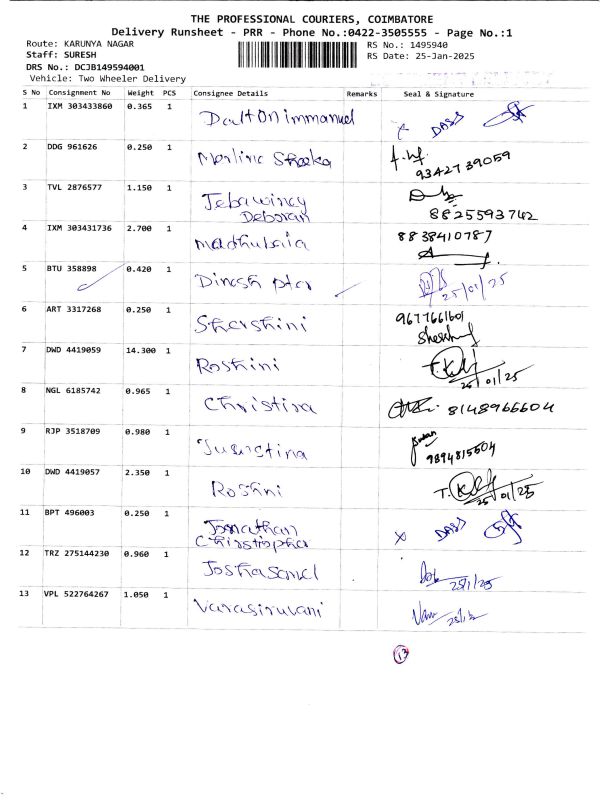 THE PROFESSIONAL COURIERS, COIMBATORE
Delivery Runsheet - PRR - Phone No.:0422-3505555 - Page No.:1
Route: KARUNYA NAGAR RS No.: 1495940
Staff: SURESH RS Date: 25-Jan-2025
DRS No.: DCJB149594001
Vehicle: Two Wheeler Delivery
S No Consignment No Weight PCS Consignee Details Remarks Seal & Signature
1 IXM 303433860 0.365 1 Dalton immanuel x DASS
2 DDG 961626 0.250 1 9342739059
3 TVL 2876577 1.150 1 Jebawincy
Deborah 8825593742
4 IXM 303431736 2.700 1 8838410787
5 BTU 358898 0.420 1 Dinesh 25/01/25
6 ART 3317268 0.250 1 Shershini 9677661601
7 DWD 4419059 14.300 1 Roshini 25/01/25
8 NGL 6185742 0.965 1 Christina 8148966604
9 RJP 3518709 0.980 1 9894815604
10 DWD 4419057 2.350 1 Roshini 25/01/25
11 BPT 496003 0.250 1 Jonathan x DASS
12 TRZ 275144230 0.960 1 25/1/25
13 VPL 522764267 1.050 1 Varasiruvani
13